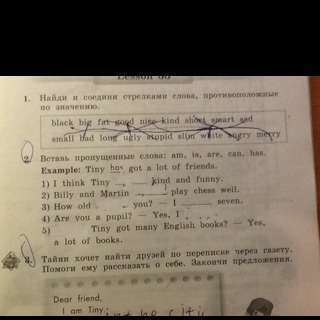 Lesson
1. Найди и соедини стрелками слова, противоположные
по значению.
black big fat good nice kind short smart sad
small bad long ugly stupid slim white angry merry
2. Вставь пропущенные слова: am, is, are, can, has.
Example: Tiny has got a lot of friends.
1) I think Tiny . . . kind and funny.
2) Billy and Martin . . . play chess well.
3) How old . . . you? — I . . . seven.
4) Are you a pupil? — Yes, I . . .
5) . . . Tiny got many English books? — Yes,
a lot of books.
3. Тайни хочет найти друзей по переписке через газету.
Помоги ему рассказать о себе. Закончи предложения.
Dear friend,
I am Tiny.